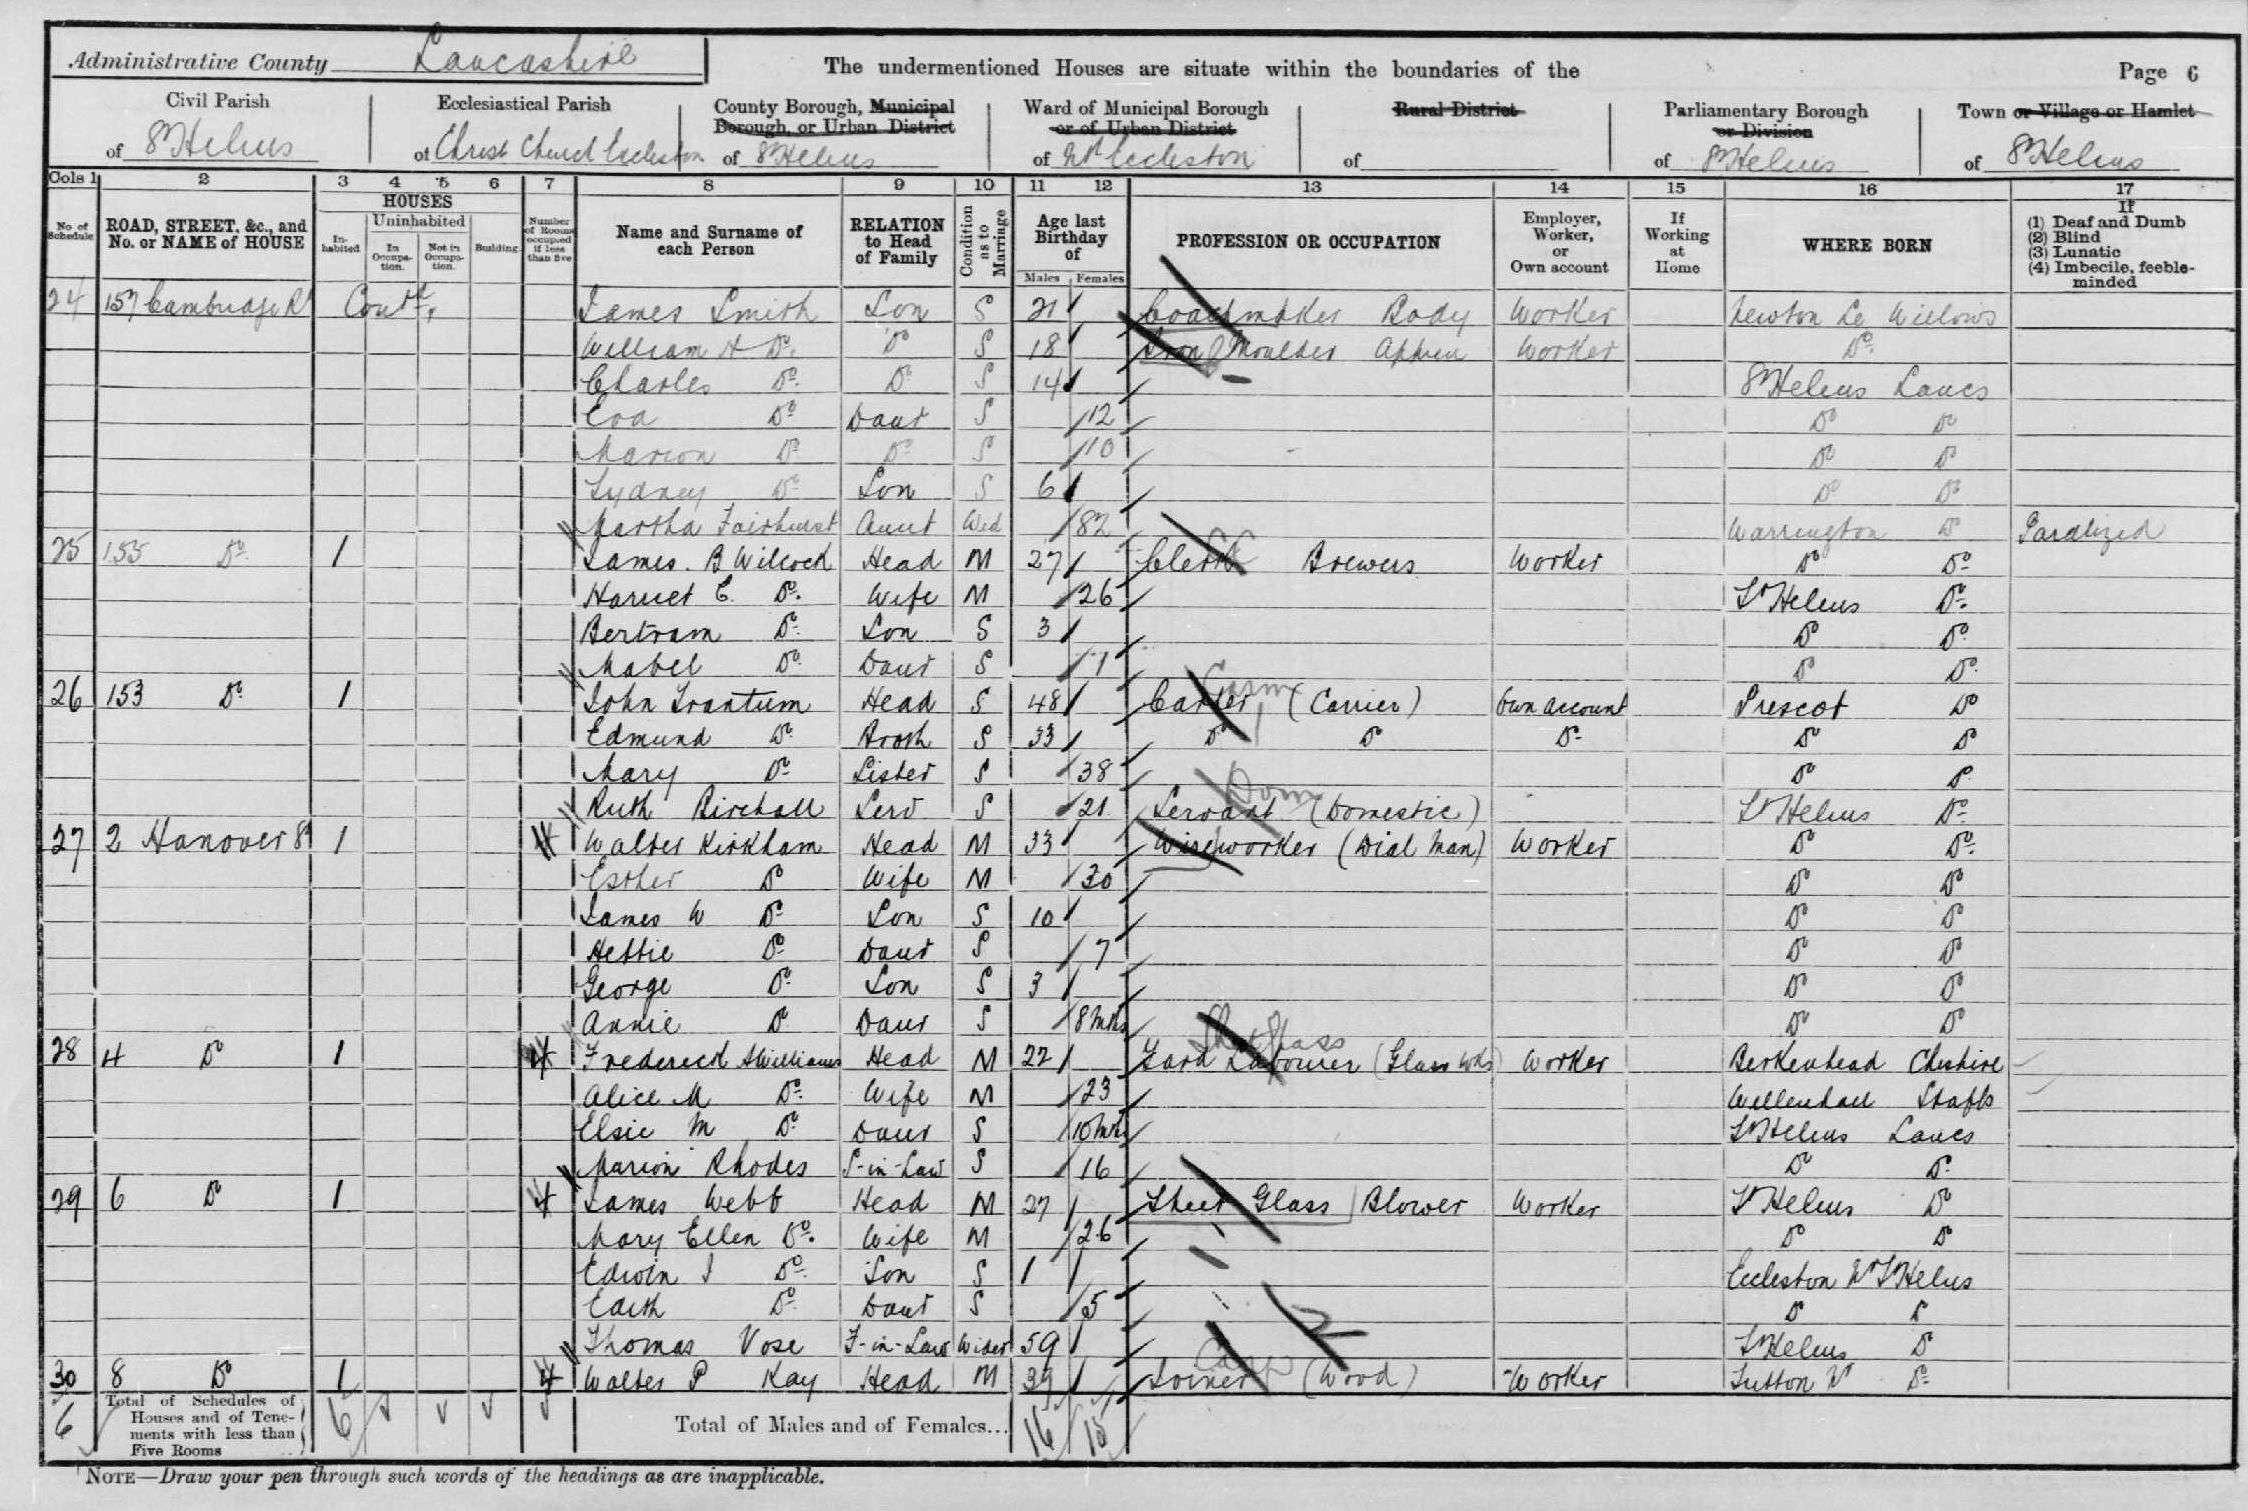 Administrative County Lancashire
The undermentioned Houses are situate within the boundaries of the
Page 6
Civil Parish of St Helens
Ecclesiastical Parish of Christ Church Eccleston
County Borough, Municipal Borough, or Urban District of St Helens
Ward of Municipal Borough or of Urban District of Eccleston
Rural District of
Parliamentary Borough or Division of St Helens
Town or Village or Hamlet of St Helens
Cols 1 2 3 4 5 6 7 8 9 10 11 12 13 14 15 16 17
No. of Schedule
ROAD, STREET, &c., and No. or NAME of HOUSE
HOUSES
Inhabited
Uninhabited
In Occupation.
Not in Occupation.
Building
Number of Rooms occupied if less than five
Name and Surname of each Person
RELATION to Head of Family
Condition as to Marriage
Age last Birthday of
Males Females
PROFESSION OR OCCUPATION
Employer, Worker, or Own account
If Working at Home
WHERE BORN
If
(1) Deaf and Dumb
(2) Blind
(3) Lunatic
(4) Imbecile, feeble-minded
24 157 Cambridge Rd Contd, James Smith Son S 21 Coachmaker Body Worker Newton Le Willows
William H Do. Do S 18 Iron Moulder Appren Worker Do.
Charles Do. Do S 14 St Helens Lancs
Eva Do Daur S 12 Do Do
Marion Do Do S 10 Do Do
Sydney Do Son S 6 Do Do
Martha Fairhurst Aunt Wid 82 Warrington Do Paralized
25 155 Do. 1 James. B Wilcock Head M 27 Clerk Brewers Worker Do Do
Harriet E. Do. Wife M 26 St Helens Do.
Bertram Do Son S 3 Do Do
Mabel Do Daur S 1 Do Do
26 153 Do. 1 John Trantum Head S 48 Carter (Carrier) Own account Prescot Do
Edmund Do Broth S 33 Do Do Do Do Do
Mary Do Sister S 38 Do Do
Ruth Birchall Serv S 21 Servant (Domestic) St Helens Do
27 2 Hanover St 1 4 Walter Kirkham Head M 33 Wireworker (Dial Man) Worker Do Do
Esther Do Wife M 30 Do Do
James W Do Son S 10 Do Do
Hettie Do Daur S 7 Do Do
George Do Son S 3 Do Do
Annie Do Daur S 8 Mths Do Do
28 4 Do 1 4 Frederick A Williams Head M 22 Yard Labourer (Glass Wks) Worker Berkenhead Cheshire
Alice M Do. Wife M 23 Willenhall Staffs
Elsie M Do Daur S 10 Mths St Helens Lancs
Marion Rhodes S-in-Law S 16 Do Do
29 6 Do 1 4 James Webb Head M 27 Sheet Glass Blower Worker St Helens Do
Mary Ellen Do. Wife M 26 Do Do
Edwin J Do Son S 1 Eccleston Nr St Helens
Edith Do Daur S 5 Do Do
Thomas Vose F-in-Law Widr 59 St Helens Do
30 8 Do 1 4 Walter P Kay Head M 39 Joiner (Wood) Worker Sutton Do
6 Total of Schedules of Houses and of Tenements with less than Five Rooms 6
Total of Males and of Females... 16 15
NOTE—Draw your pen through such words of the headings as are inapplicable.